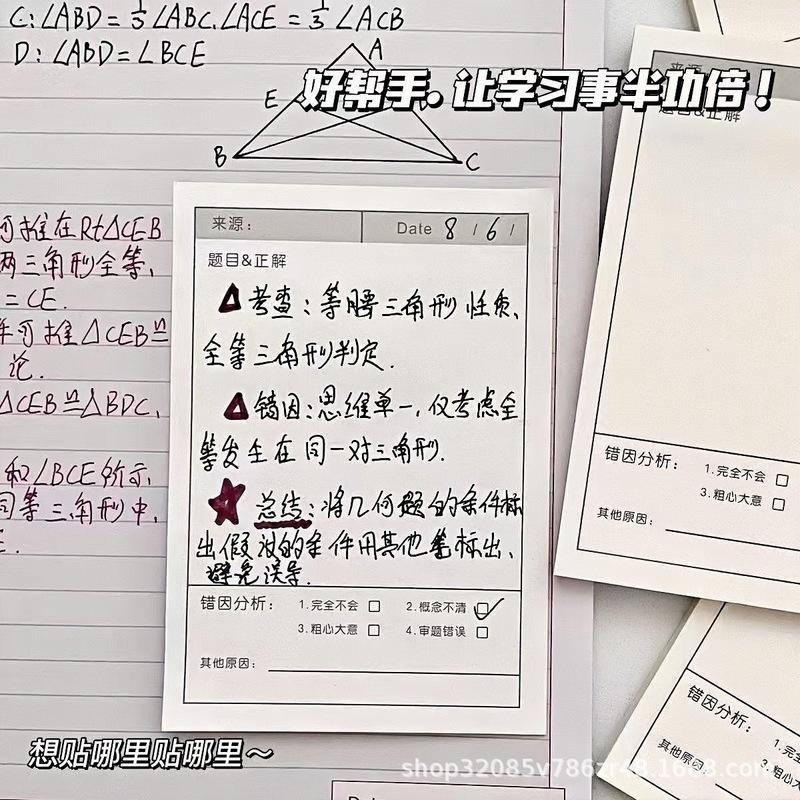 C:∠ABD = 1/3 ∠ABC.∠ACE = 1/3 ∠ACB
D: ∠ABD = ∠BCE
A
E
B
C
好帮手。让学习事半功倍！
可推在Rt△CEB
两三角形全等、
=CE.
可推△CEB≌
论.
△CEB≌△BDC、
和∠BCE所示、
同等三角形中、
来源：
Date 8 / 6 /
题目&正解
△考查：等腰三角形性质、
全等三角形判定.
△错因：思维单一，仅考虑全
等发生在同一对三角形.
★总结：将几何题的条件标
出假设的条件用其他笔标出、
避免误导.
错因分析：
1.完全不会 □ 2.概念不清 ☑
3.粗心大意 □ 4.审题错误 □
其他原因：
来源：
题目&正解
错因分析：
1.完全不会 □
3.粗心大意 □
其他原因：
错因分析：
1.完全
3.粗
其他原因：
想贴哪里贴哪里～
shop32085v786zr48.1688.com